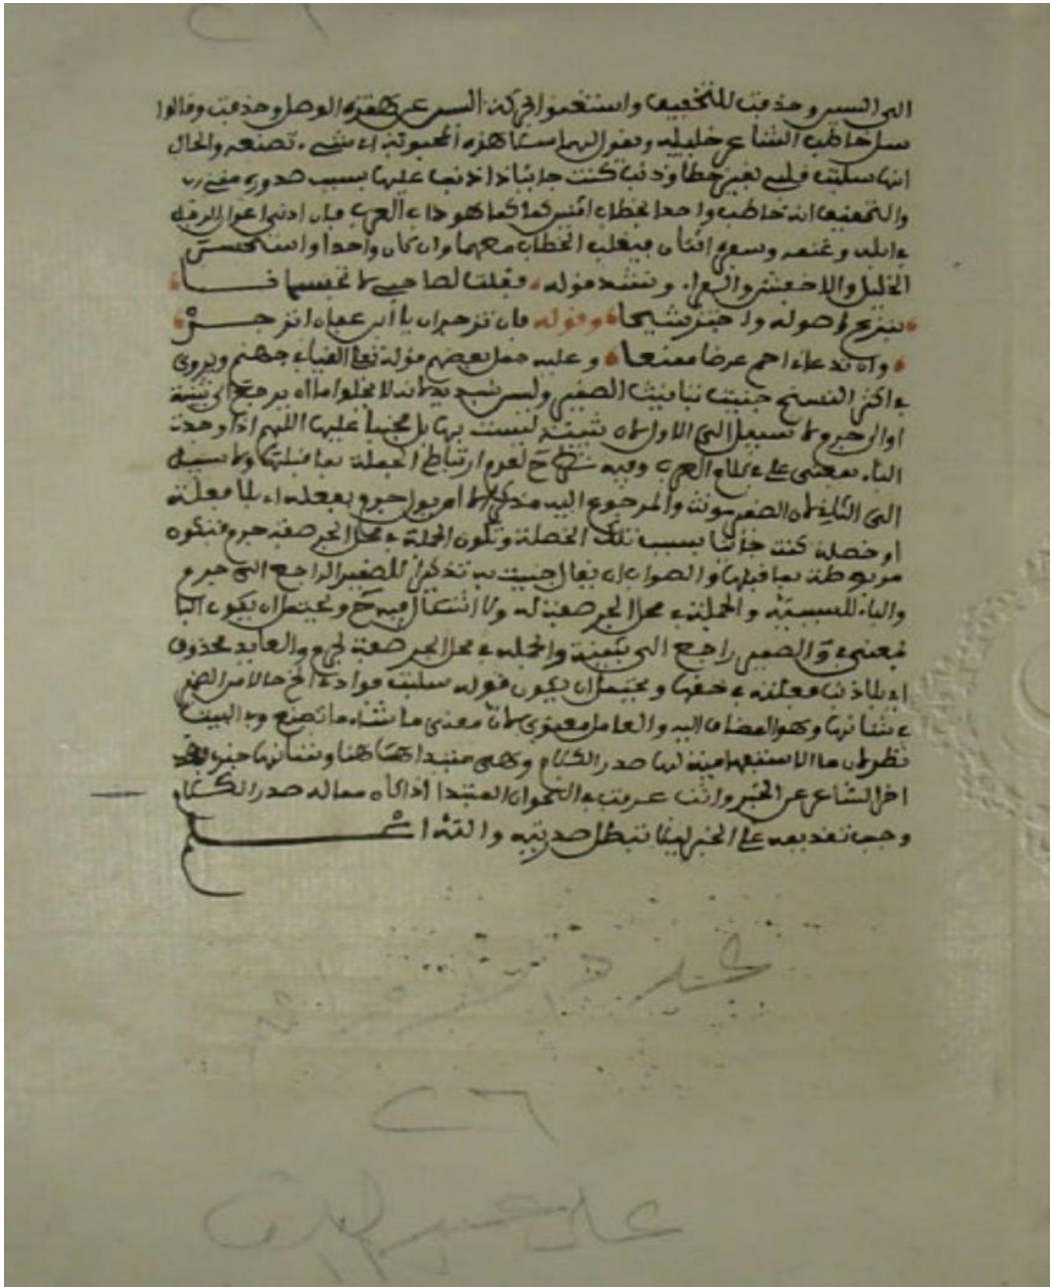 ٢٦
الى السين وحذفت للتخفيف واستغنوا بحركة السين عن همزة الوصل وحذفت وقالوا
سل خاطب الشاعر خليليه ويقول لهما سلا هذه المحبوبة اي شيء تصنعه والحال
انها سلبت قلبي بغير خطا وذنب كنت جانبا ذا ذنب عليها بسبب صدوره مني
والتحقيق انه خاطب واحدا بخطاب اثنين كما هو داب العرب فان ادنى اعوان الرجل
في ابله وغنمه وسفره اثنان فيغلب الخطاب معهما وان كان واحدا واستحسن
الخليل والاخفش والفراء وينشد قوله فقلت لصاحبي لا تحبسانا
بنزع اصوله واجتز شيحا وقوله فان تزجراني يا ابن عفان انزجر
وان تدعاني احم عرضا ممنعا وعليه حمل بعضهم قوله تعالى القيا في جهنم ويروى
في اكثر النسخ جنيت بتانيث الضمير وليس بسديد لانه لا يخلوا ما ان يرجع الى بثينة
او الى جرم ولا سبيل الى الاول لان بثينة ليست بها بل مجنيا عليها اللهم اذا وجدت
الباء بمعنى على في كلام العرب وفيه نظر ح لعدم ارتباط الجملة بما قبلها ولا سبيل
الى الثاني لان الضمير مونث والمرجوع اليه مذكر الا ان يول جرم بفعلة اي بلا فعلة
او خصلة كنت جانيا بسبب تلك الخصلة وتكون الجملة في محل الجر صفة جرم فتكون
مربوطة بما قبلها والصواب ان يقال جنيت به بتذكير الضمير الراجع الى جرم
والباء للسببية والجملة في محل الجر صفة له ولا اشكال فيه ح ويحتمل ان يكون الباء
بمعنى في والضمير راجع الى بثينة والجملة في محل الجر صفة لجرم والعايد محذوف
اي بلا ذنب فعلته في حقها ويحتمل ان يكون قوله سلبت فوادي الخ حالا من الضمير
في شانها وهو المضاف اليه والعامل معنوي لان معنى ما شانها ما تصنع وفي البيت
نظر لان ما الاستفهامية لها صدر الكلام وهي مبتدا هاهنا وشانها خبره وقد
اخر الشاعر عن الخبر وانت عرفت في النحو ان المبتدا اذا كان مما له صدر الكلام
وجب تقديمه على الخبر ليلا تبطل صدريته والله اعلم
٢٦